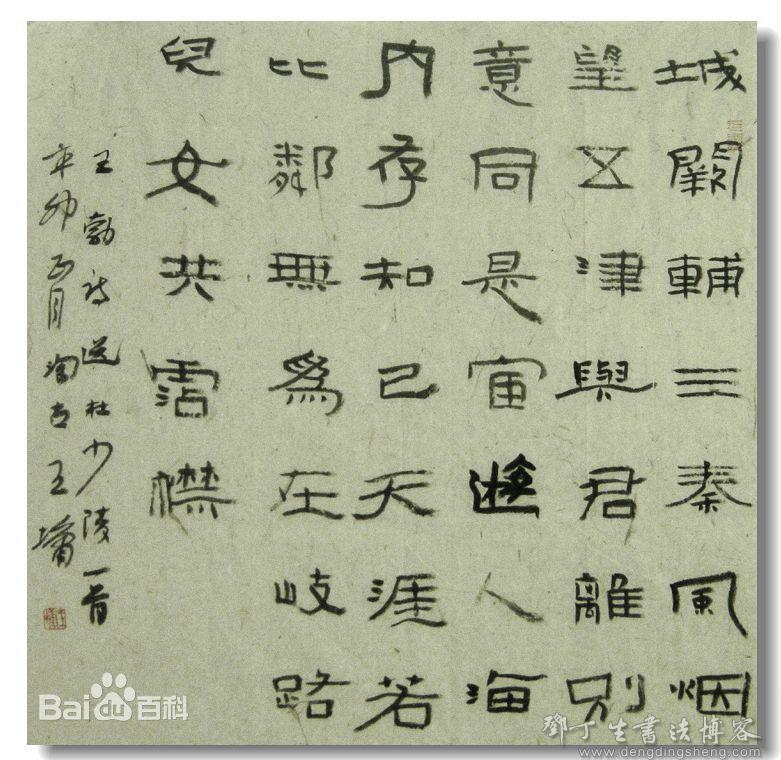 城闕輔三秦風烟
望五津與君離別
意同是宦遊人海
内存知己天涯若
比鄰無爲在岐路
兒女共霑襟
王勃詩送杜少陵一首
辛卯正月 王
Bai百科
鄧丁生書法博客
www.dengdingsheng.com